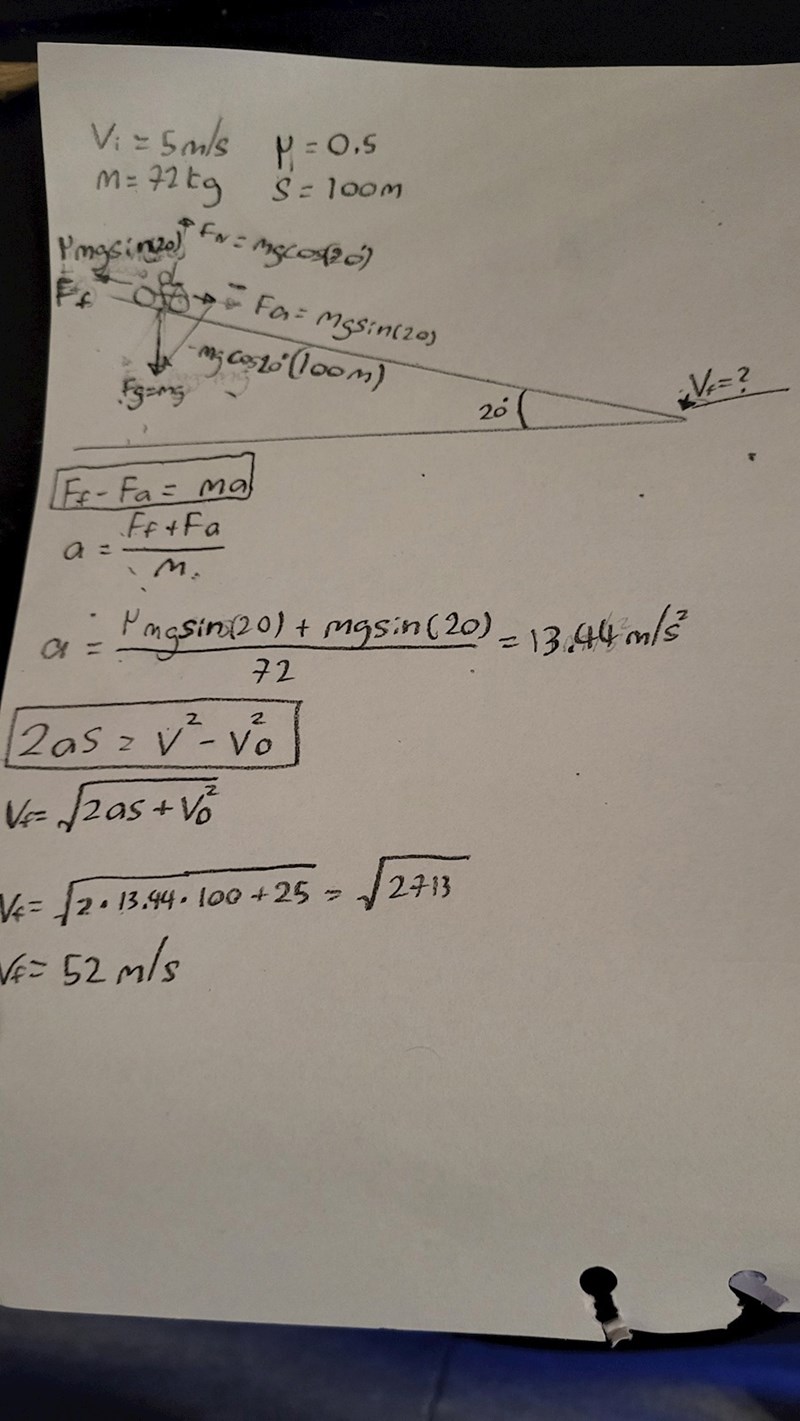 Vi = 5m/s μ = 0.5
m = 72kg S = 100m
μmgsin(20) FN = mgcos(20°)
Ff Fa = mgsin(20)
mgcos20° (100m)
Fg=mg
20°
Vf=?
Ff - Fa = ma
a = Ff + Fa / m
a = μmgsin(20) + mgsin(20) / 72 = 13.44 m/s²
2as = V² - V0²
Vf = √2as + V0²
Vf = √2 • 13.44 • 100 + 25 = √2713
Vf = 52 m/s